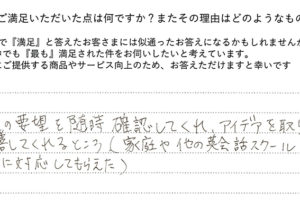 ご満足いただいた点は何ですか?またその理由はどのようなもの
で『満足』と答えたお客さまには似通ったお答えになるかもしれませんが
でも『最も』満足された件をお伺いしたいと考えています。
にご提供する商品やサービス向上のため、お答えただけますと幸いです
の要望を随時 確認してくれ、アイデアを取り
してくれるところ(家庭や他の英会話スクール
に対応してもらえた)